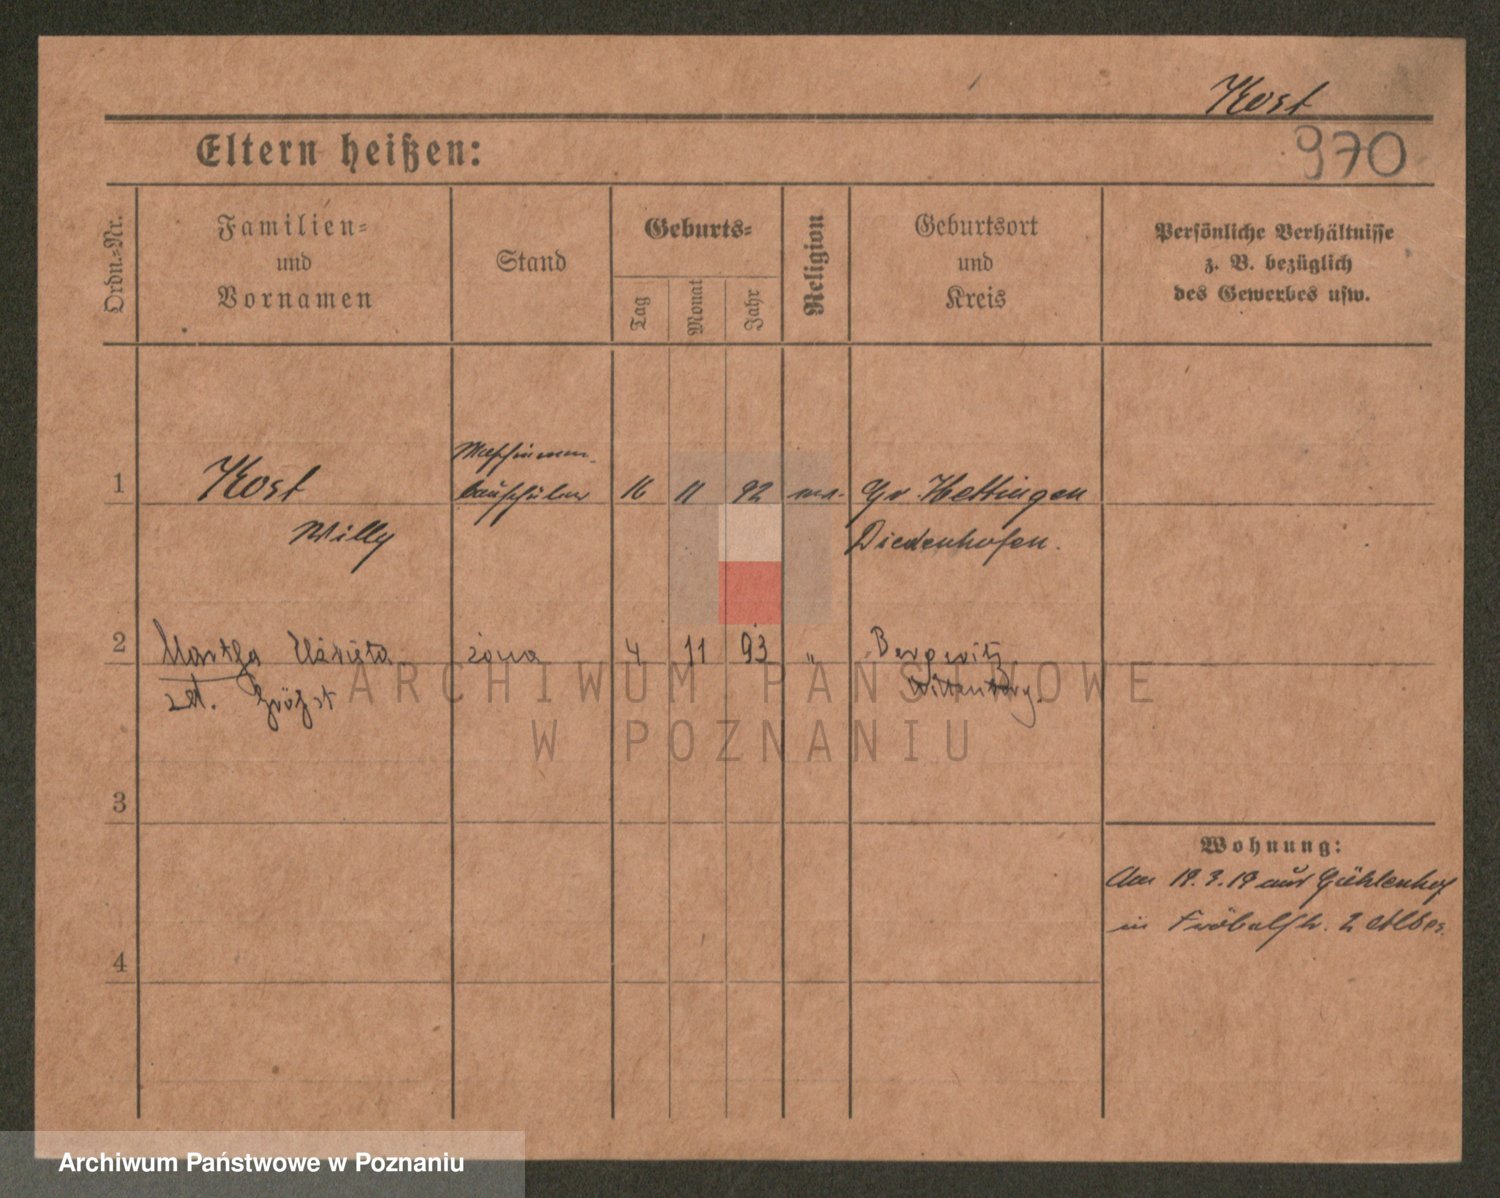 Kost
970
Eltern heißen:
Ordn.-Nr.
Familien-
und
Vornamen
Stand
Geburts-
Tag
Monat
Jahr
Religion
Geburtsort
und
Kreis
Persönliche Verhältnisse
z. B. bezüglich
des Gewerbes usw.
1
Kost
Willy
Maschinen-
bauschüler
16
11
92
Gr. Hettingen
Diedenhofen.
2
Martha Elżbieta
żona
4
11
93
"
Wittenberg.
3
4
Wohnung:
Am 19.3.19 aus Gühlenhof
in Fröbelstr. 2
ARCHIWUM PAŃSTWOWE
W POZNANIU
Archiwum Państwowe w Poznaniu